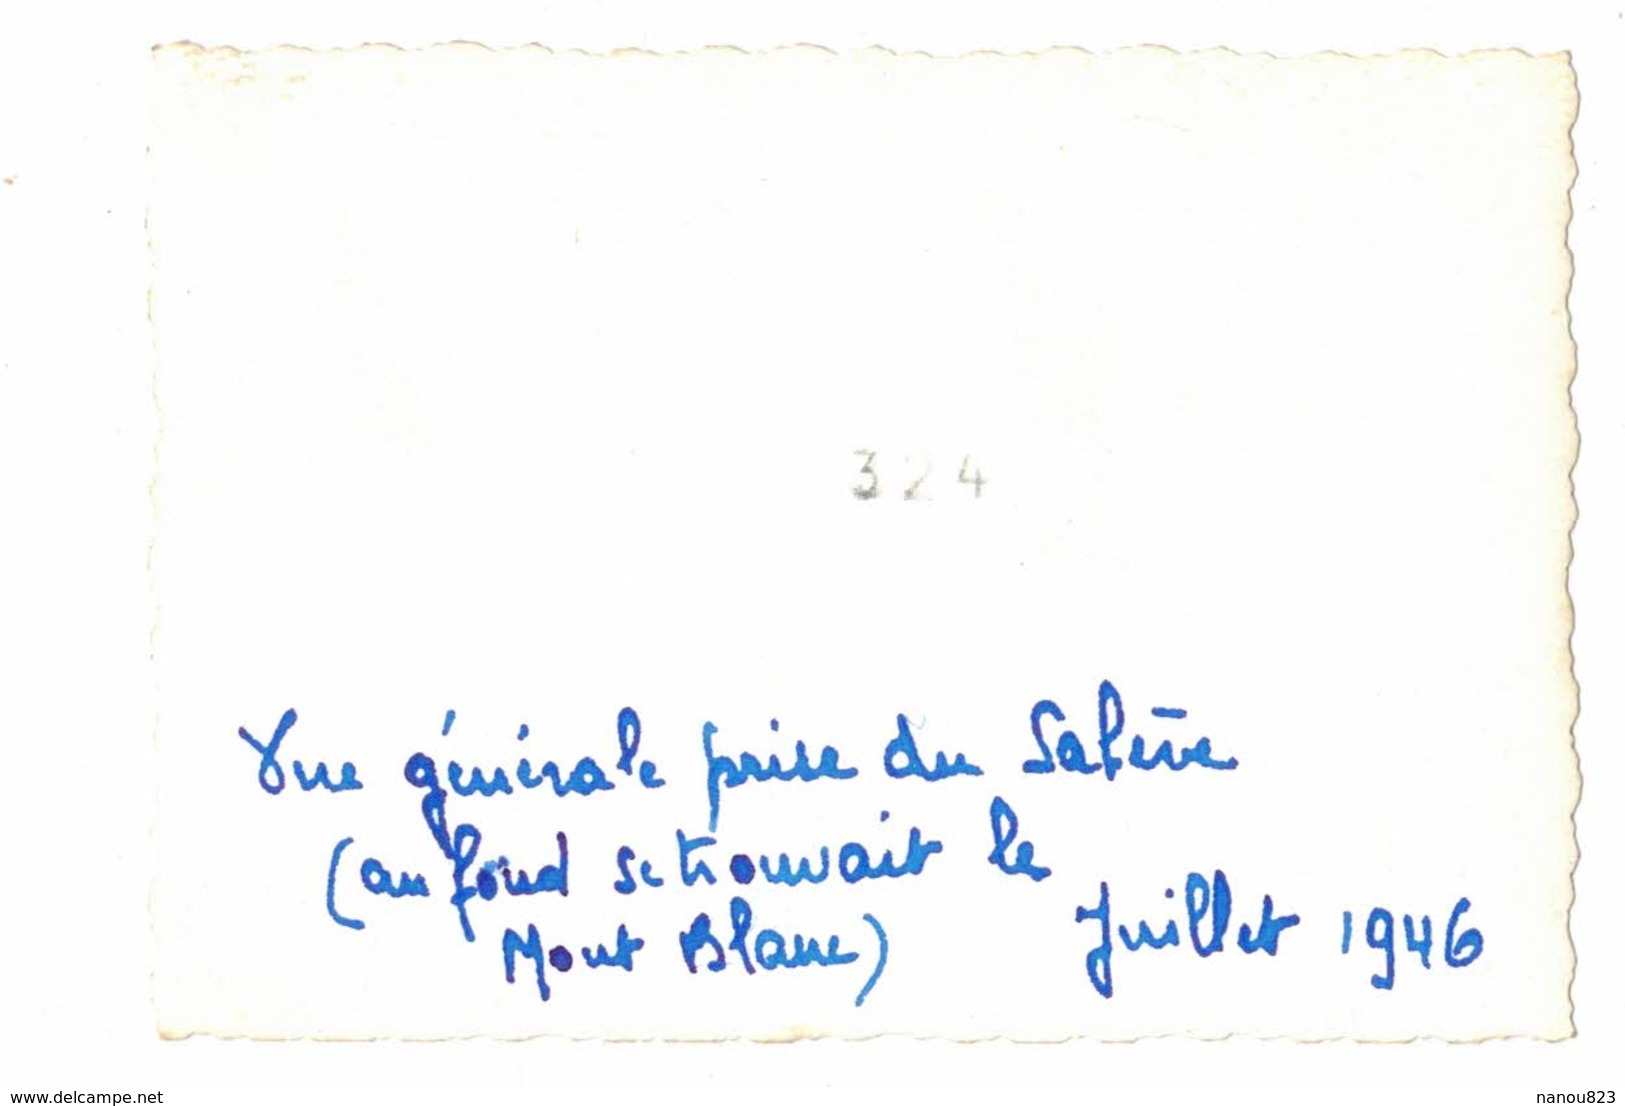 324
Vue générale prise du Salève
(au fond se trouvait le
Mont Blanc)
Juillet 1946
www.delcampe.net
nanou823